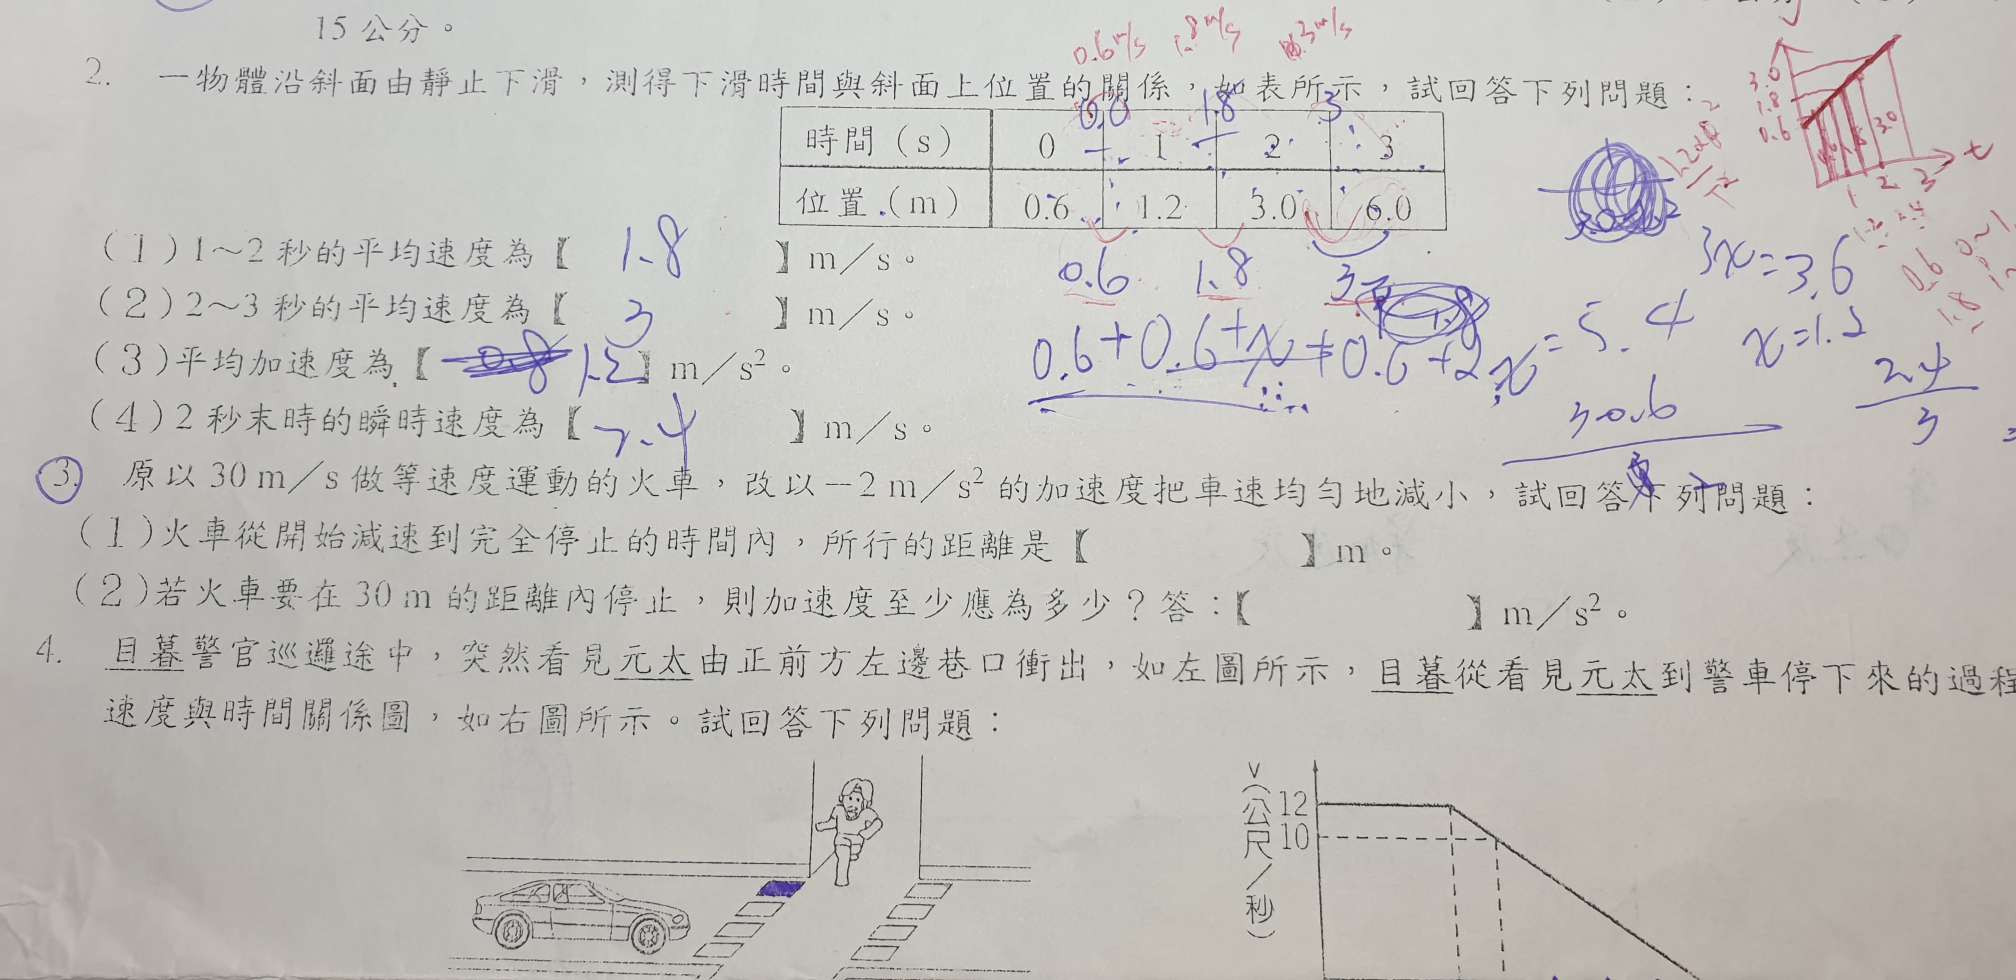 15公分。
0.6m/s 1.8m/s 3m/s
2. 一物體沿斜面由靜止下滑，測得下滑時間與斜面上位置的關係，如表所示，試回答下列問題：
1.8 3
時間（s） 0 1 2 3
位置（m） 0.6 1.2 3.0 6.0
3.0
1.8
0.6
t
1 2 3
(1)1～2秒的平均速度為【 1.8 】m／s。
0.6 1.8 3
3x=3.6
(2)2～3秒的平均速度為【 3 】m／s。
0.6+0.6+x+0.6+2x=5.4
x=1.2
(3)平均加速度為【 1.2 】m／s²。
2.4
3
(4)2秒末時的瞬時速度為【 2.4 】m／s。
3. 原以30 m／s做等速度運動的火車，改以－2 m／s²的加速度把車速均勻地減小，試回答下列問題：
(1)火車從開始減速到完全停止的時間內，所行的距離是【 】m。
(2)若火車要在30 m的距離內停止，則加速度至少應為多少？答：【 】m／s²。
4. 目暮警官巡邏途中，突然看見元太由正前方左邊巷口衝出，如左圖所示，目暮從看見元太到警車停下來的過程
速度與時間關係圖，如右圖所示。試回答下列問題：
v（公尺／秒）
12
10